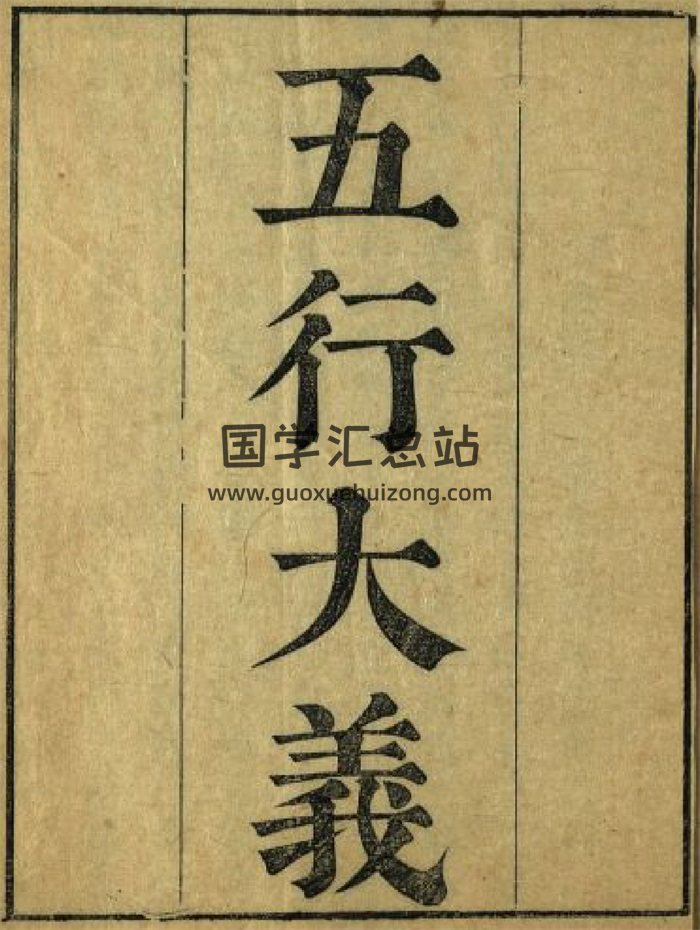 五行大義
国学汇总站
www.guoxuehuizong.com